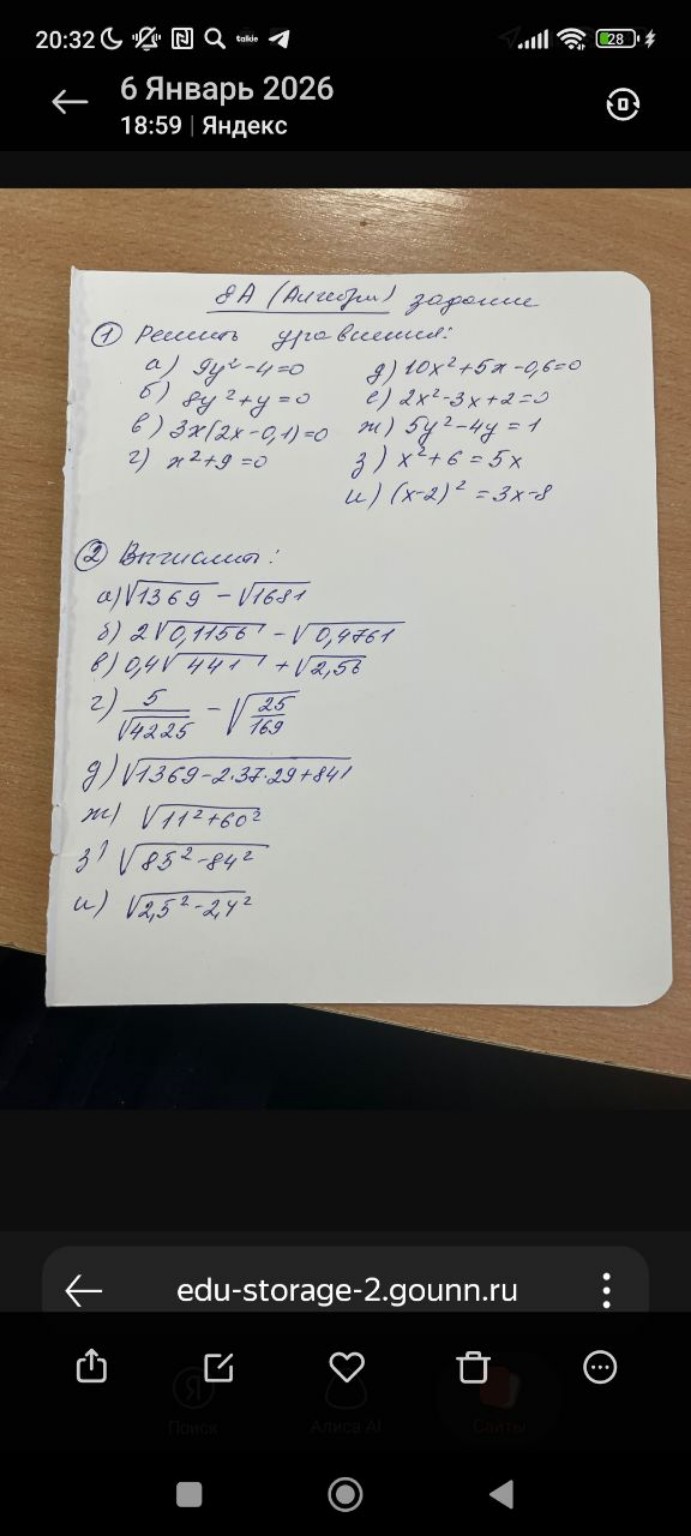 20:32 talkie 28
6 Январь 2026
18:59 | Яндекс
8А (Алгебра) задание
① Решить уравнения:
а) 9y² - 4 = 0
б) 8y² + y = 0
в) 3x(2x - 0,1) = 0
г) x² + 9 = 0
д) 10x² + 5x - 0,6 = 0
е) 2x² - 3x + 2 = 0
ж) 5y² - 4y = 1
з) x² + 6 = 5x
и) (x - 2)² = 3x - 8
② Вычислить:
а) √1369 - √1681
б) 2√0,1156 - √0,4761
в) 0,4√441 + √2,56
г) 5/√4225 - √25/169
д) √1369 - 2·37·29 + 841
ж) √11² + 60²
з) √85² - 84²
и) √2,5² - 2,4²
edu-storage-2.gounn.ru
Поиск Алиса AI Сайты